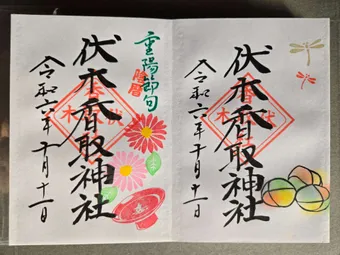 重陽節句
陰暦
伏木香取神社
令和六年十月十一日
伏木香取神社
令和六年十月十二日